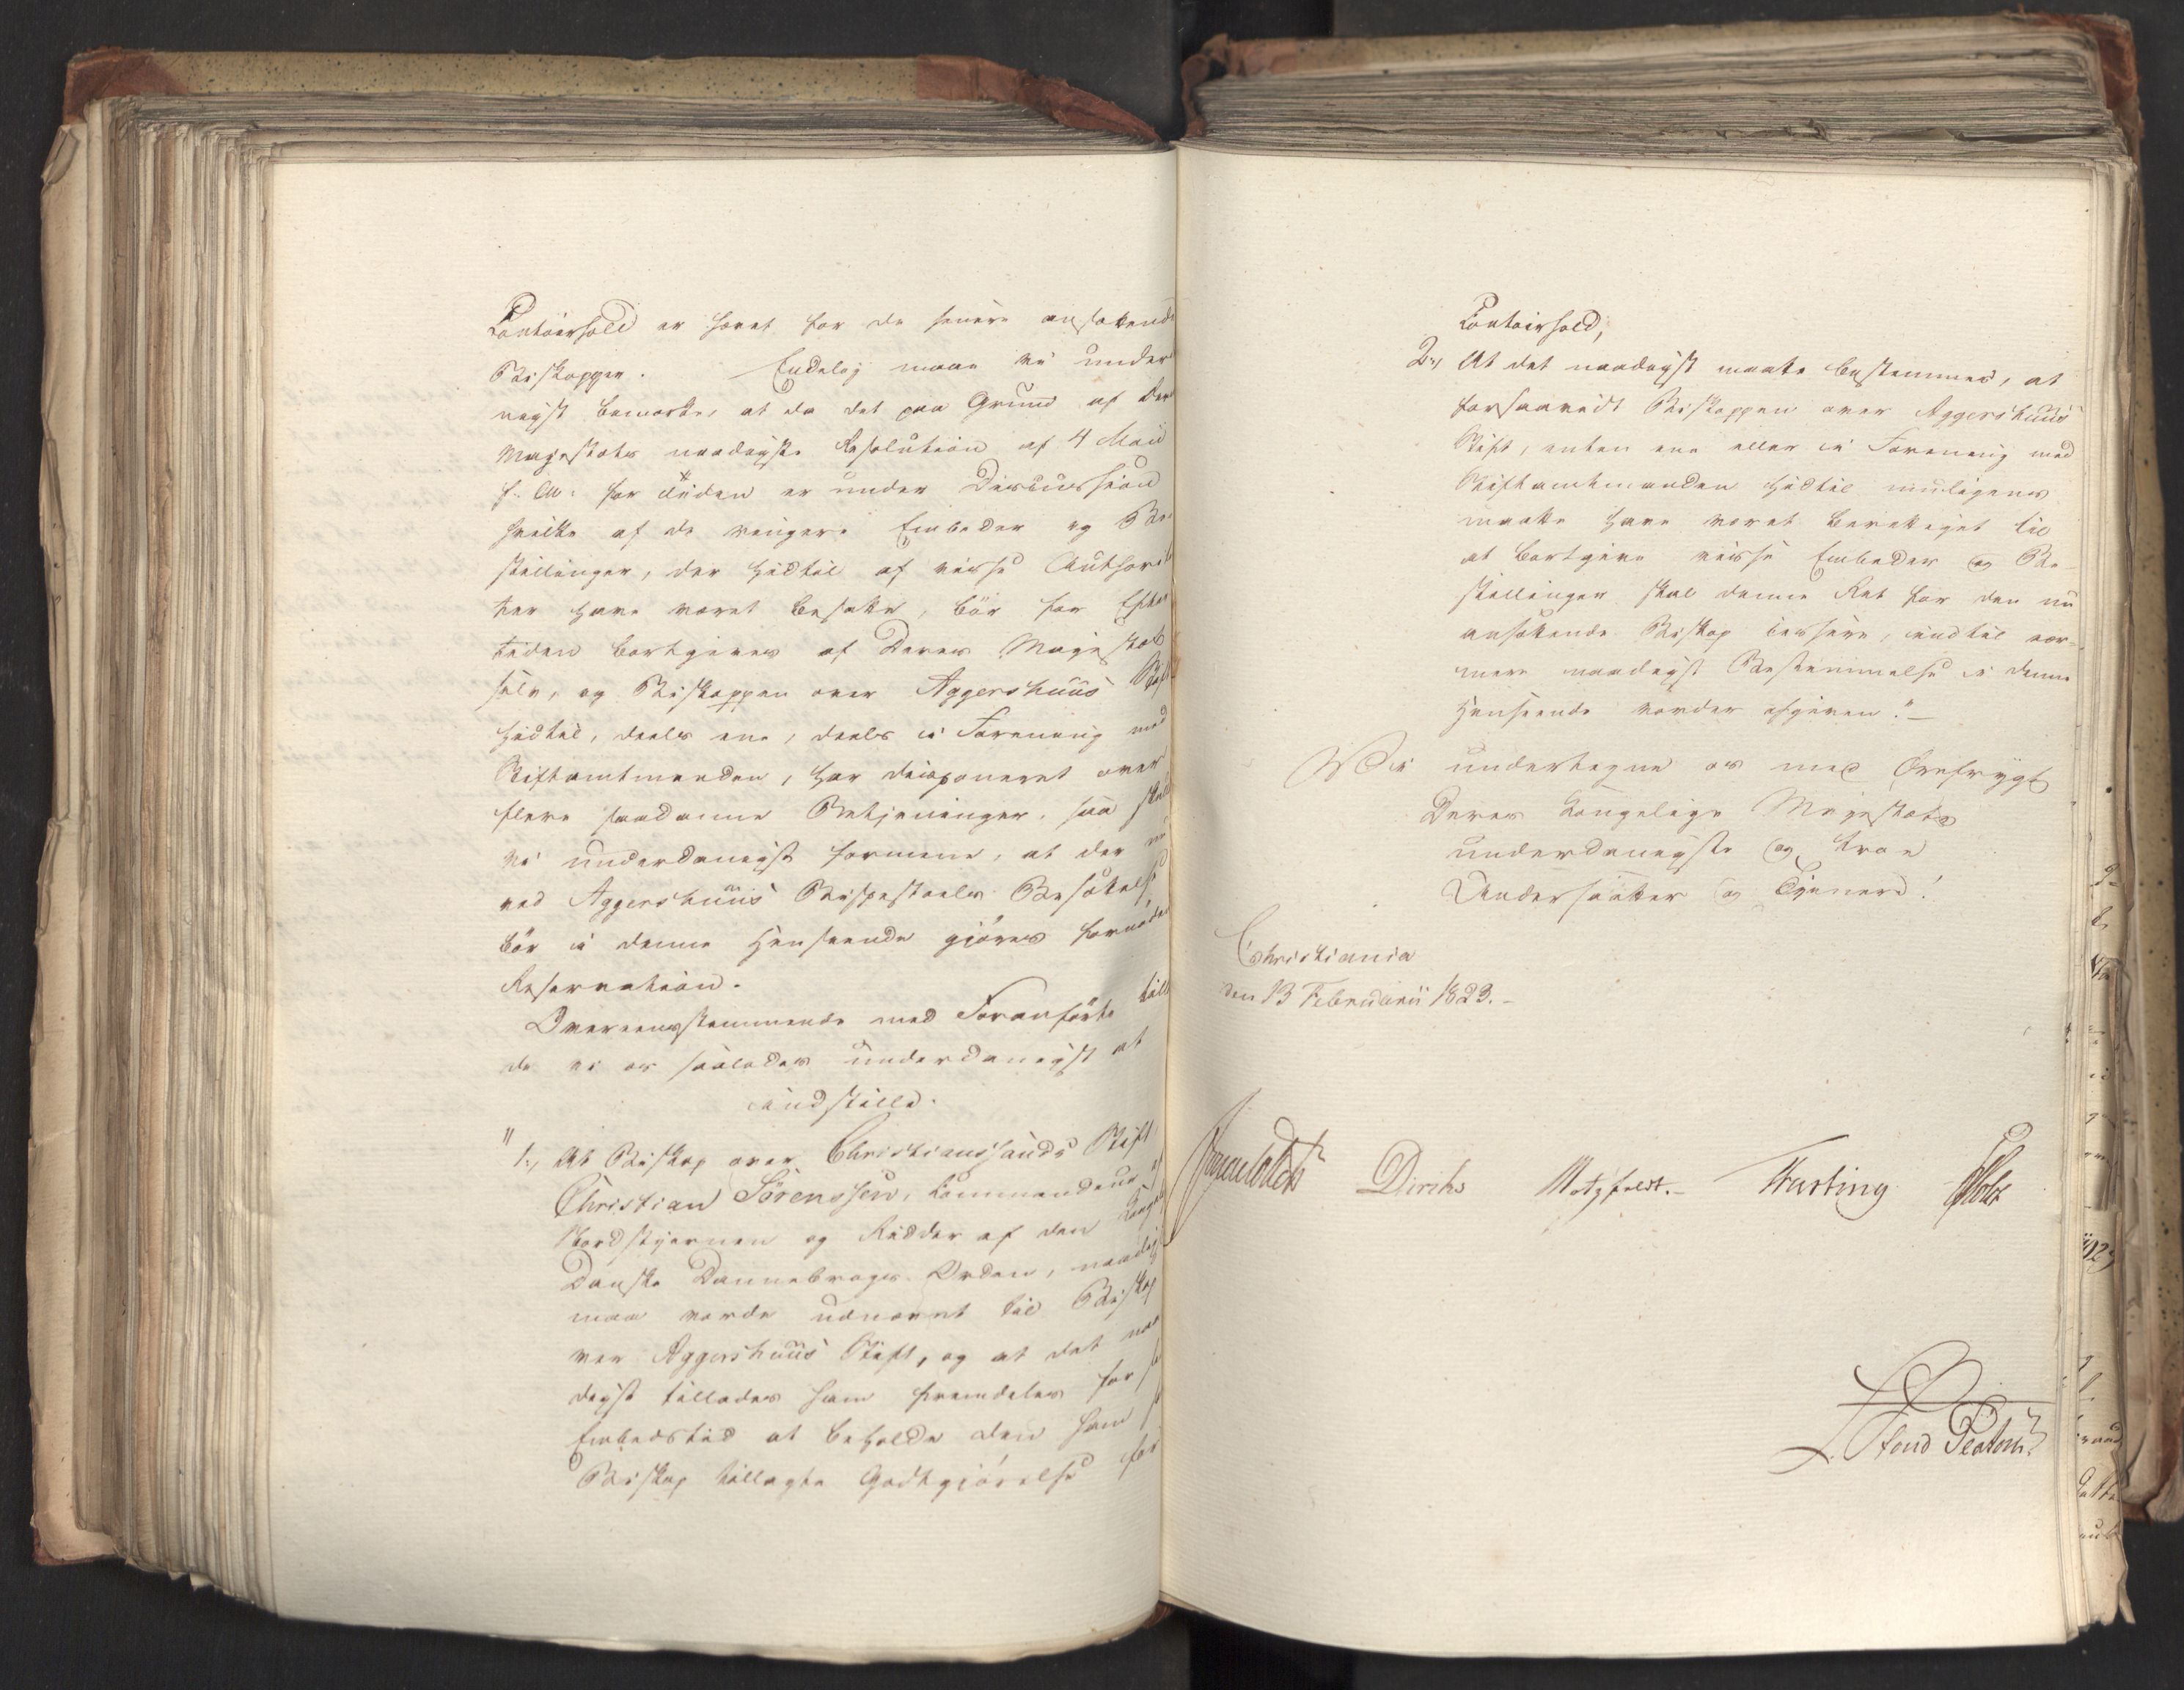 Contoirhold er hævet for de senere ansættende
Biskopper. Endelig maae vi under
nigst bemærke, at da det paa Grund af Deres
Majestæts naadigste Resolution af 4 Maii
f: A: for Tiden er under Discussion
hvilke af de ringere Embeder og Be
stillinger, der hidtil af visse Authorite
ter have været besatte, bör for Efter
tiden bortgives af Deres Majestæt
selv, og Biskoppen over Aggershuus Stift
hidtil, deels ene, deels i Forening med
Stiftamtmanden, har disponeret over
flere saadanne Betjeninger, saa skulle
vi underdanigst formene, at der nu
ved Aggershuus Bispestoels Besættelse
bör i denne Henseende gjöres fornöden
Reservation.
Overeensstemmende med Foranförte tilla
de vi os saaledes underdanigst at
indstille.
"1., At Biskop over Christianssands Stift
Christian Sörenssen, Commandeur af
Nordstjernen og Ridder af den Kongel
Danske Dannebrogs Orden, naadigst
maa vorde udnævnt til Biskop
over Aggershuus Stift, og at det naa
digst tillades ham fremdeles for sin
Embedstid at beholde den ham som
Biskop tillagte Godtgjörelse for
Contoirhold;
2., At det naadigst maatte bestemmes, at
forsaavidt Biskoppen over Aggershuus
Stift, enten ene eller i Forening med
Stiftamtmanden hidtil muligens
maatte have været berettiget til
at bortgive visse Embeder og Be-
stillinger skal denne Ret for den nu
ansættende Biskop cessere, indtil nær-
mere naadigst Bestemmelse i denne
Henseende vorder afgiven."_
Vi undertegne os med Ærefrygt
Deres Kongelige Majestæts
underdanigste og troe
Undersaatter og Tjenere!
Christiania
den 13 Februarii 1823.-
Sommerhielm Diriks Motzfeldt.- Fasting Holst